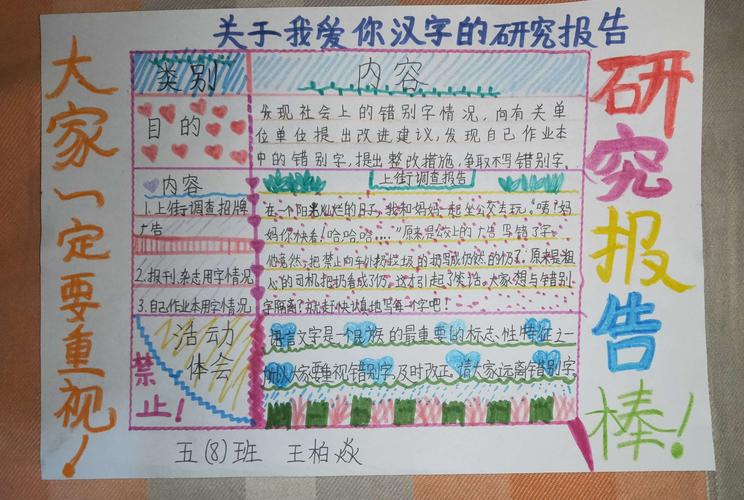 关于我爱你汉字的研究报告
大家一定要重视！
类别
内容
目的
发现社会上的错别字情况，向有关单
位单位提出改进建议，发现自己作业本
中的错别字，提出整改措施，争取不写错别字。
内容
1.上街调查招牌
广告
2.报刊、杂志用字情况
3.自己作业本用字情况
上街调查报告
在一个阳光灿烂的日子，我和妈妈一起坐公交去玩。“咦！妈
妈你快看！哈哈哈……”原来是公交上的广告写错了字。
他竟然把禁止向车外扔垃圾的扔写成仍然的仍了。原来是粗
心的司机把扔看成了仍。这才引起了笑话。大家想与错别
字隔离？就赶快认真地写每一个字吧！
活动
体会
禁止！
语言文字是一个民族的最重要的标志、性特征之一
所以大家要重视错别字，及时改正，请大家远离错别字
研究报告棒！
五（8）班 王柏焱